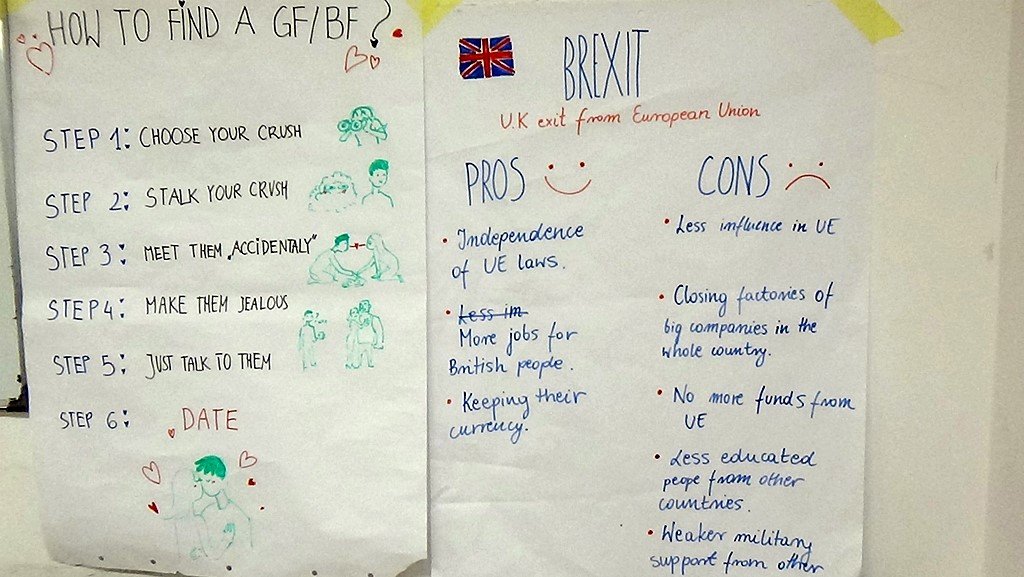 HOW TO FIND A GF/BF?
STEP 1: CHOOSE YOUR CRUSH
STEP 2: STALK YOUR CRUSH
STEP 3: MEET THEM „ACCIDENTALY"
STEP 4: MAKE THEM JEALOUS
STEP 5: JUST TALK TO THEM
STEP 6: DATE
BREXIT
U.K exit from European Union
PROS
• Independence
of UE laws.
• Less im
More jobs for
British people.
• Keeping their
currency.
CONS
• Less influence in UE
• Closing factories of
big companies in the
whole country.
• No more funds from
UE
• Less educated
peope from other
countries.
• Weaker military
support from other